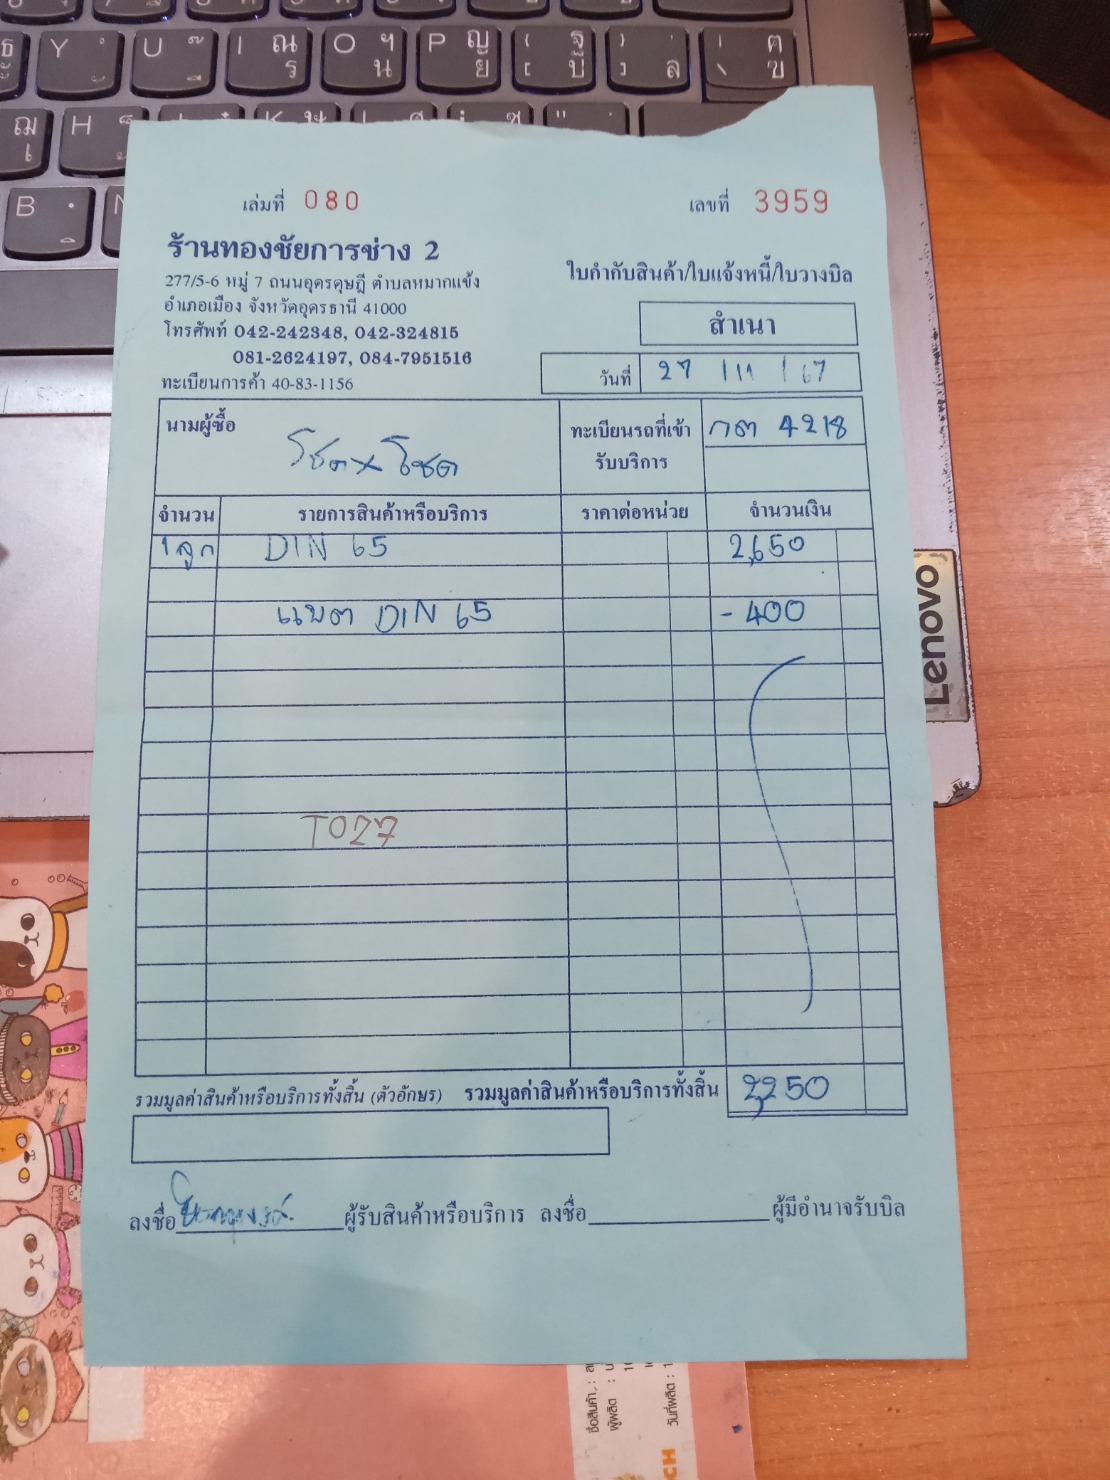 Y U I ณ ร O ฯ น P ญ ย [ ฐ บ ] ล \ ฅ ฃ
ฌ เ H
B
เล่มที่ 080 เลขที่ 3959
ร้านทองชัยการช่าง 2
277/5-6 หมู่ 7 ถนนอุดรดุษฎี ตำบลหมากแข้ง
อำเภอเมือง จังหวัดอุดรธานี 41000
โทรศัพท์ 042-242348, 042-324815
081-2624197, 084-7951516
ทะเบียนการค้า 40-83-1156
ใบกำกับสินค้า/ใบแจ้งหนี้/ใบวางบิล
สำเนา
วันที่ 27 / 11 / 67
นามผู้ซื้อ โชค x โชค
ทะเบียนรถที่เข้ารับบริการ กต 4218
จำนวน รายการสินค้าหรือบริการ ราคาต่อหน่วย จำนวนเงิน
1 ลูก DIN 65 2,650
แบต DIN 65 - 400
T027
รวมมูลค่าสินค้าหรือบริการทั้งสิ้น (ตัวอักษร) รวมมูลค่าสินค้าหรือบริการทั้งสิ้น 2,250
ลงชื่อ ผู้รับสินค้าหรือบริการ ลงชื่อ ผู้มีอำนาจรับบิล
Lenovo
ชื่อสินค้า :
ผู้ผลิต :
วันที่ผลิต :
CH